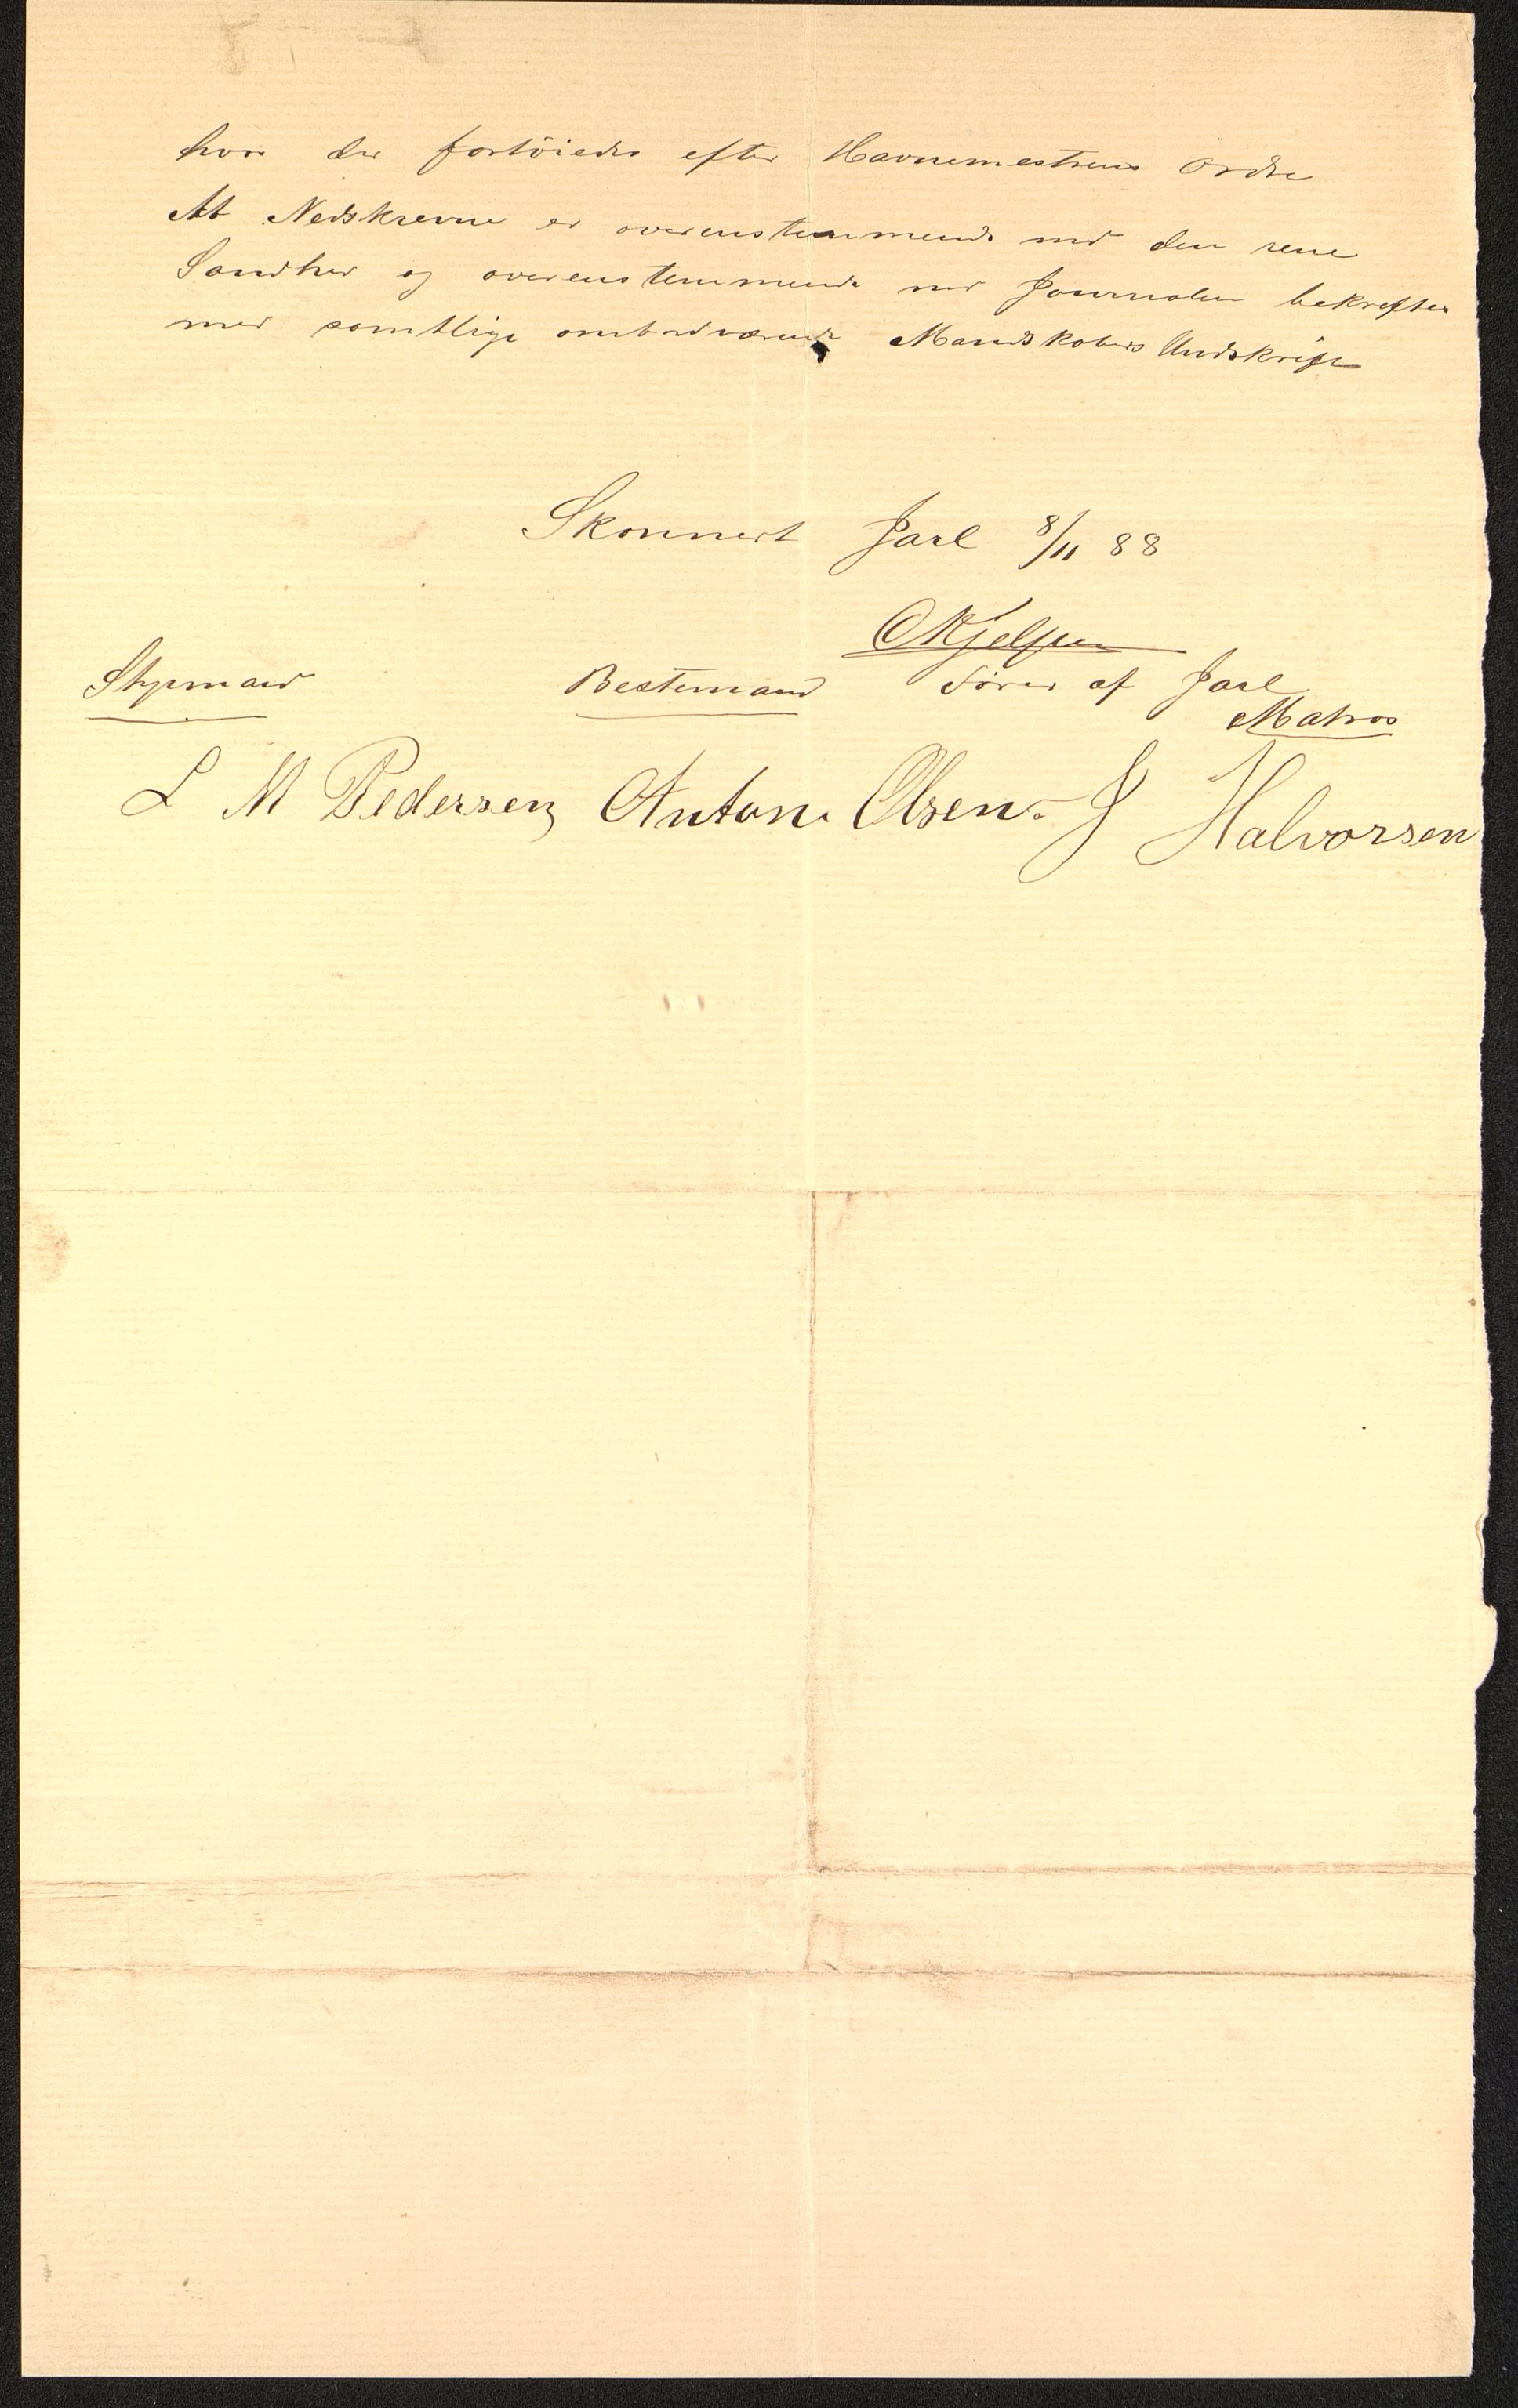 hvor der fortöiedes efter Havnemestrens Ordre
At Nedskrevne er overenstemmende med den rene
Sandhed og overenstemmende med Journalen bekræftes
med samtlige ombordværende Mandskabers Undskrift
Skonnert Jarl 8/11 88
Fører af Jarl
Styrmand Bestemand Matros
L M Pedersen Anton Olsen. J Halvorsen